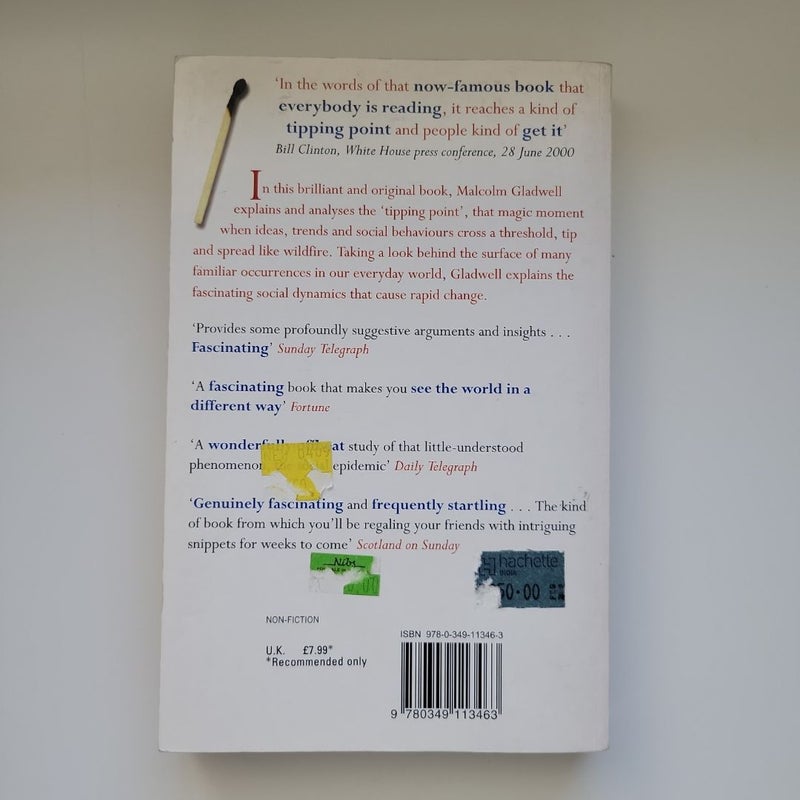 ‘In the words of that now-famous book that
everybody is reading, it reaches a kind of
tipping point and people kind of get it’
Bill Clinton, White House press conference, 28 June 2000
In this brilliant and original book, Malcolm Gladwell
explains and analyses the ‘tipping point’, that magic moment
when ideas, trends and social behaviours cross a threshold, tip
and spread like wildfire. Taking a look behind the surface of many
familiar occurrences in our everyday world, Gladwell explains the
fascinating social dynamics that cause rapid change.
‘Provides some profoundly suggestive arguments and insights . . .
Fascinating’ Sunday Telegraph
‘A fascinating book that makes you see the world in a
different way’ Fortune
‘A wonderfully study of that little-understood
epidemic’ Daily Telegraph
‘Genuinely fascinating and frequently startling . . . The kind
of book from which you’ll be regaling your friends with intriguing
snippets for weeks to come’ Scotland on Sunday
hachette
INDIA
50·00
NON-FICTION
U.K. £7.99*
*Recommended only
ISBN 978-0-349-11346-3
9 780349 113463